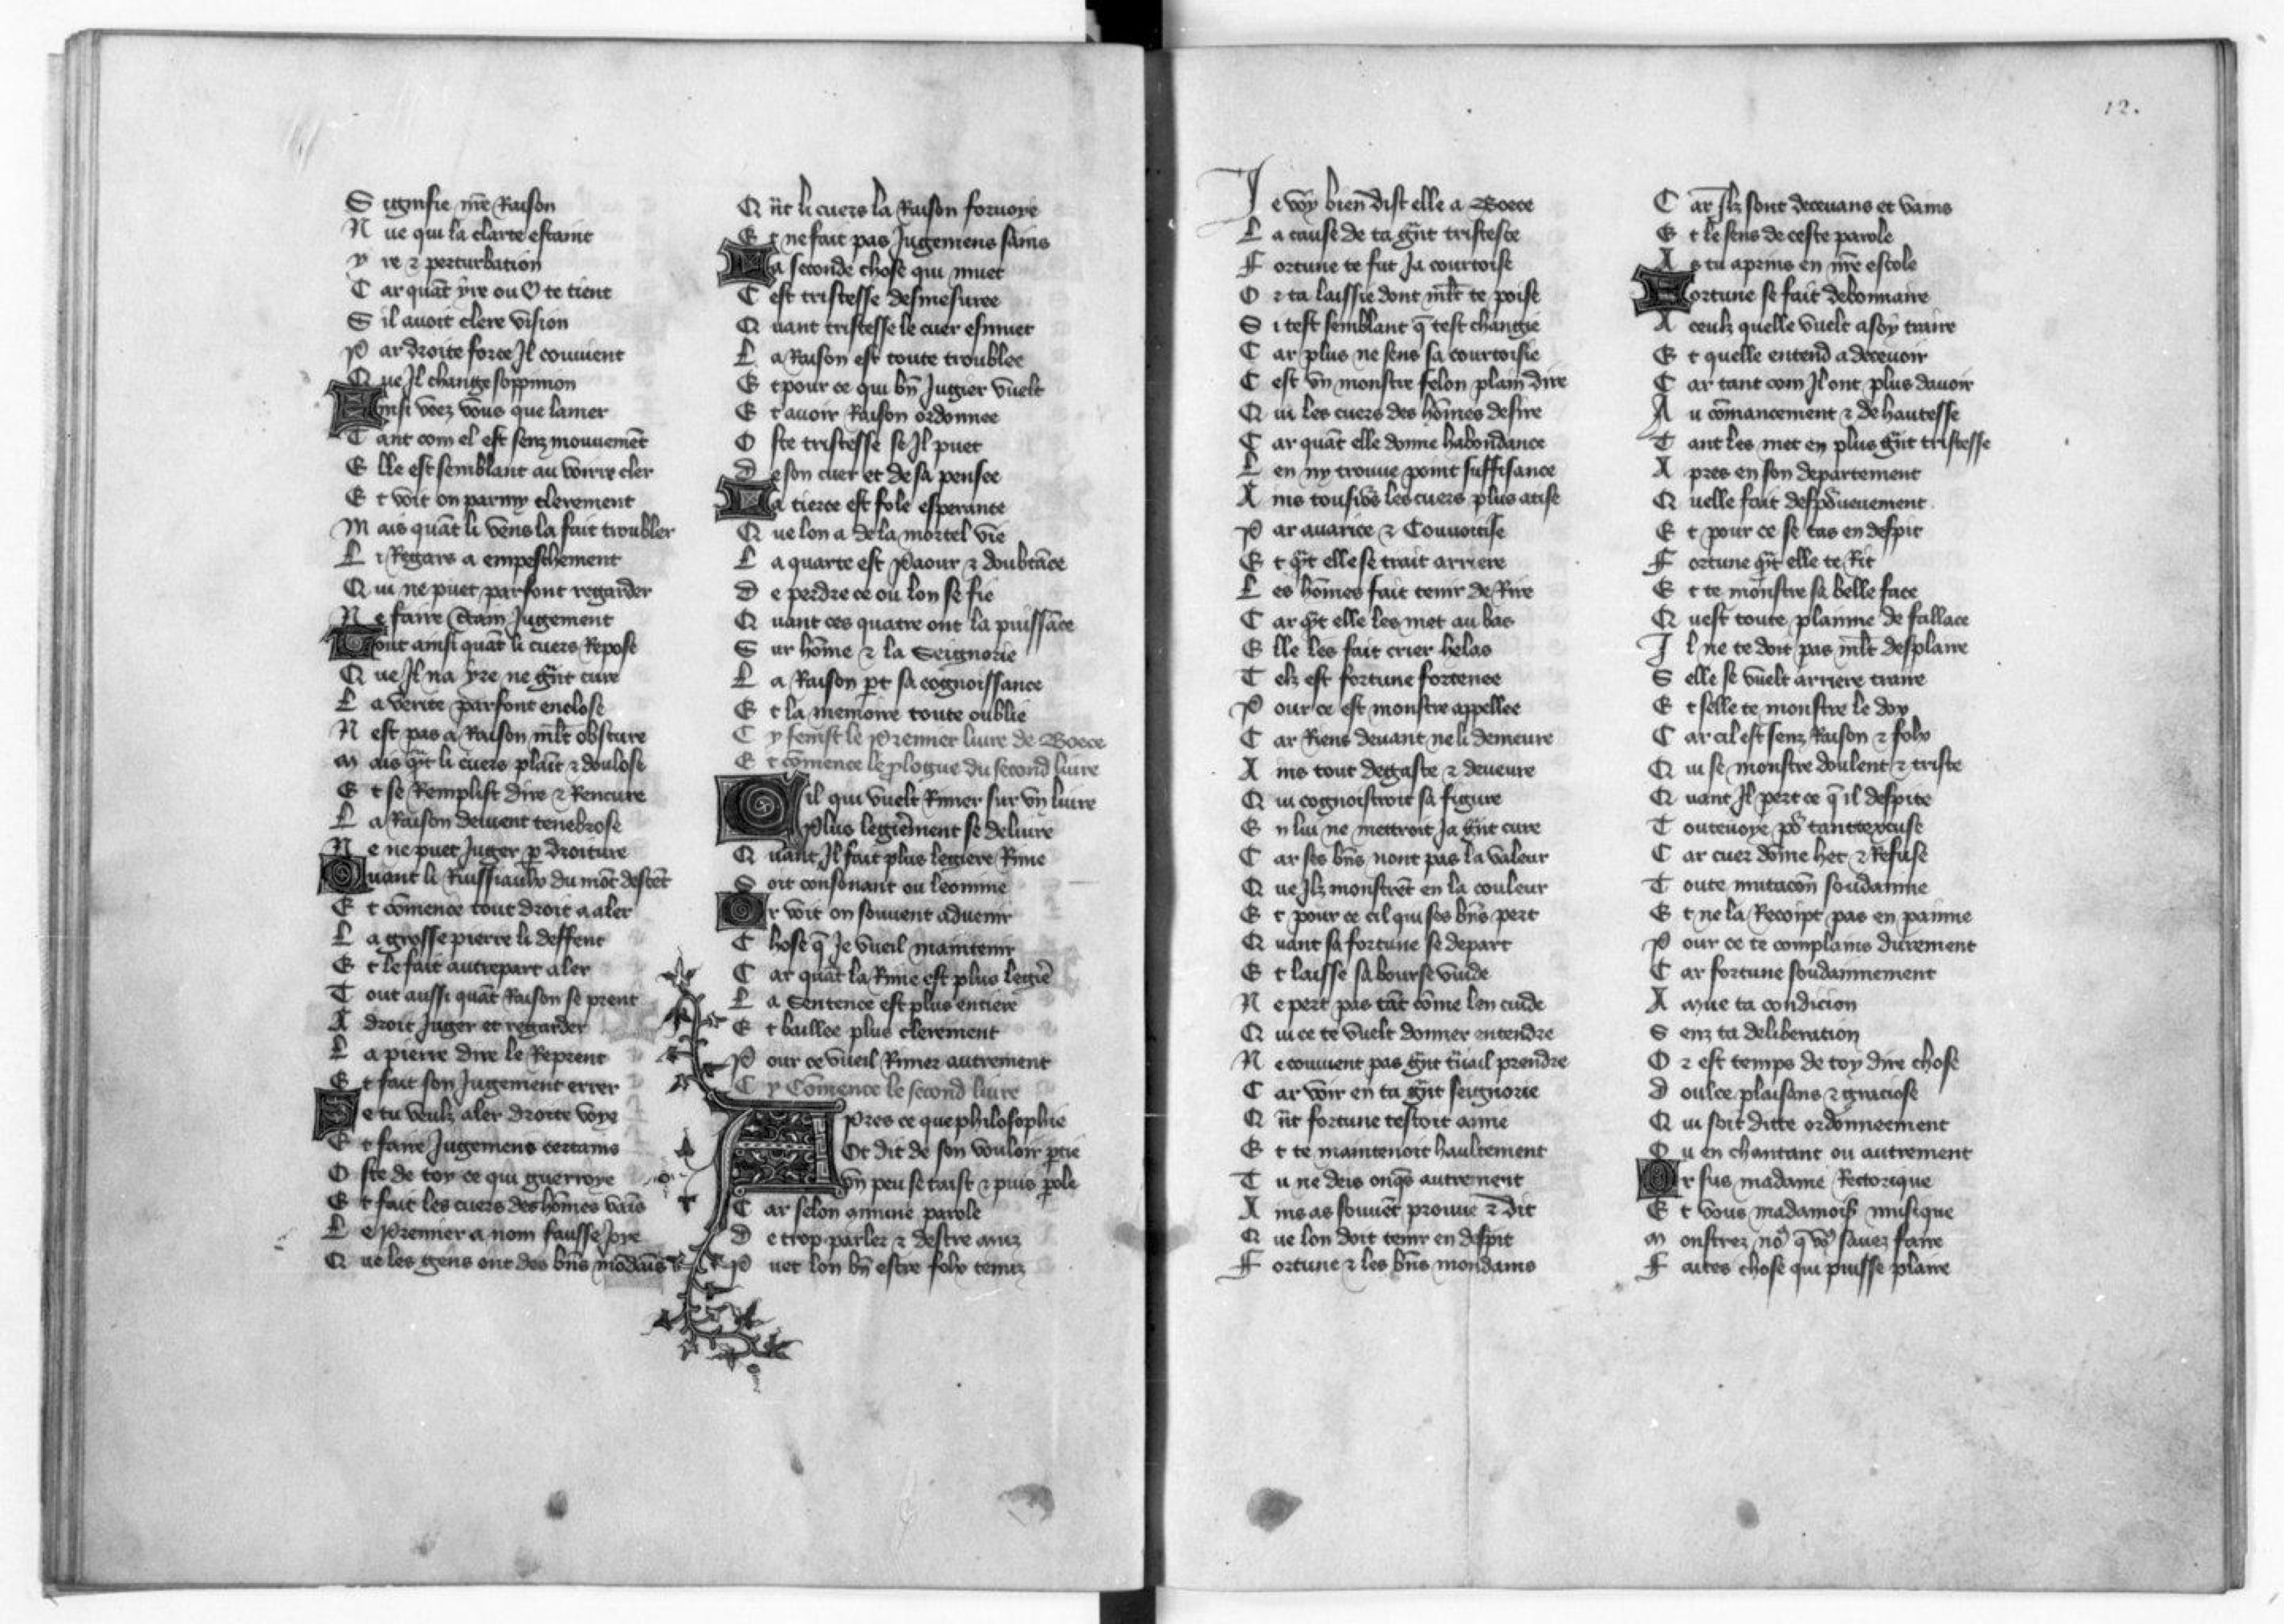 Signifie nr̃e Raison
Nue qui la clarte estaint
yre ⁊ perturbation
Car quãt yre ou O te tient
Sil auoit clere vision
Par droite force Il conuient
Que Il change soppinion
Ainsi veez vous que la mer
Tant com el est senz mouuemẽt
Elle est semblant au voirre cler
Et voit on parmy clerement
Mais quãt li vens la fait troubler
Li Regars a empeschement
Qui ne puet parfont regarder
Ne faire c̃tain Jugement
Tout ainsi quãt li cuers Repose
Que Il na yre ne gñt cure
La verite parfont enclose
Nest pas a Raison ml̃t obscure
Mais qñt li cuers plaĩt ⁊ doulose
Et se Remplist dire ⁊ Rencure
La Raison deuient tenebrose
Ne ne puet Juger p̱ droiture
Quant li Ruissiaulx du mõt descẽt
Et cõmence tout droit a aler
La grosse pierre li deffent
Et le fait autrepart aler
Tout aussi quãt Raison se prent
A droit Juger et regarder
La pierre dire le Reprent
Et fait son Jugement errer
Se tu veulz aler droite voye
Et faire Jugemens certains
Oste de toy ce qui guerroye
Et fait les cuers des hõmes vaĩs
Le Premier a nom fausse Joye
Que les gens ont des bñs mõdaĩs
Qñt li cuers la Raison foruoye
Et ne fait pas Jugemens sains
La seconde chose qui muet
Cest tristesse desmesuree
Quant tristesse le cuer esmuet
La Raison est toute troublee
Et pour ce qui bñ Jugier vuelt
Et auoir Raison ordonnee
Oste tristesse se Il puet
De son cuer et de sa pensee
La tierce est fole esperance
Que lon a de la mortel vie
La quarte est Paour ⁊ doubtãce
De perdre ce ou lon se fie
Quant ces quatre ont la puissãce
Sur hõme ⁊ la Seignorie
La Raison p̱t sa cognoissance
Et la memoire toute oublie
Cy fenist le Premier liure de Boece
Et cõmence le p̱logue du second liure
Cil qui vuelt Rimer sur vn liure
Plus legieremẽnt se deliure
Quant Il fait plus legiere Rime
Soit consonant ou leonime
Or voit on souuent aduenir
Chose q̃ Je vueil maintenir
Car quãt la Rime est plus legiẽ
La Sentence est plus entiere
Et baillee plus clerement
Pour ce vueil Rimer autrement
Cy Cõmence le second liure
Apres ce que philosophie
Ot dit de son vouloir p̱tie
Vn peu se taist ⁊ puis p̱ole
Car selon cõmune parole
De trop parler ⁊ destre muz
Puet lon bñ estre folx tenuz
Je voy bien dist elle a Boece
La cause de ta gñt tristesce
Fortune te fut Ja courtoise
Or ta laissie dont ml̃t te poise
Si test semblant q̃ test changie
Car plus ne sens sa courtoisie
Cest vn monstre felon plain dire
Qui les cuers des hõmes desire
Car quãt elle donne habondance
Len ny trouue point suffisance
Ains tousiõs les cuers plus atise
Par auarice ⁊ Conuoitise
Et qñt elle se trait arriere
Les hõmes fait tenir de Rire
Car qñt elle les met au bas
Elle les fait crier helas
Telz est fortune forcenee
Pour ce est monstre appellee
Car Riens deuant ne li demeure
Ains tout degaste ⁊ deueure
Qui cognoistroit sa figure
En lui ne mettroit Ja gñt cure
Car ses bñs nont pas la valeur
Que Ilz monstrẽt en la couleur
Et pour ce cil qui ses bñs pert
Quant sa fortune se depart
Et laisse sa bourse vuide
Ne pert pas tãt cõme len cuide
Qui ce te vuelt donner entendre
Ne conuient pas gñt tũail prendre
Car voir en ta gñt seignorie
Qñt fortune testoit amie
Et te maintenoit haultement
Tu ne deis onq̃s autrement
Ains as souuẽt prouue ⁊ dit
Que lon doit tenir en despit
Fortune ⁊ les bñs mondains
Car Ilz sont deceuans et vains
Et le sens de ceste parole
As tu aprins en nr̃e escole
Fortune se fait debonnaire
A ceulz quelle vuelt a soy traire
Et quelle entend a deceuoir
Car tant com Il ont plus dauoir
Au cõmancement ⁊ de hautesse
Tant les met en plus gñt tristesse
Apres en son departement
Quelle fait despõueuement
Et pour ce se tas en despit
Fortune qñt elle te Rit
Et te monstre sa belle face
Quest toute plainne de fallace
Il ne te doit pas ml̃t desplaire
Selle se vuelt arriere traire
Et selle te monstre le dox
Car cil est senz Raison ⁊ folx
Qui se monstre doulent ⁊ triste
Quant Il pert ce q̃ il despite
Toutenoye põ tant texcuse
Car cuer dõme het ⁊ Refuse
Toute mutacõn soudainne
Et ne la Recoipt pas en painne
Pour ce te complains durement
Car fortune soudainnement
A mue ta condicion
Senz ta deliberation
Or est temps de toy dire chose
Doulce plaisans ⁊ graciose
Qui soit ditte ordonneement
Ou en chantant ou autrement
Or sus madame Rectorique
Et vous madamois̃ musique
Monstrez noꝰ q̃ voꝰ sauez faire
Faites chose qui puisse plaire
12.